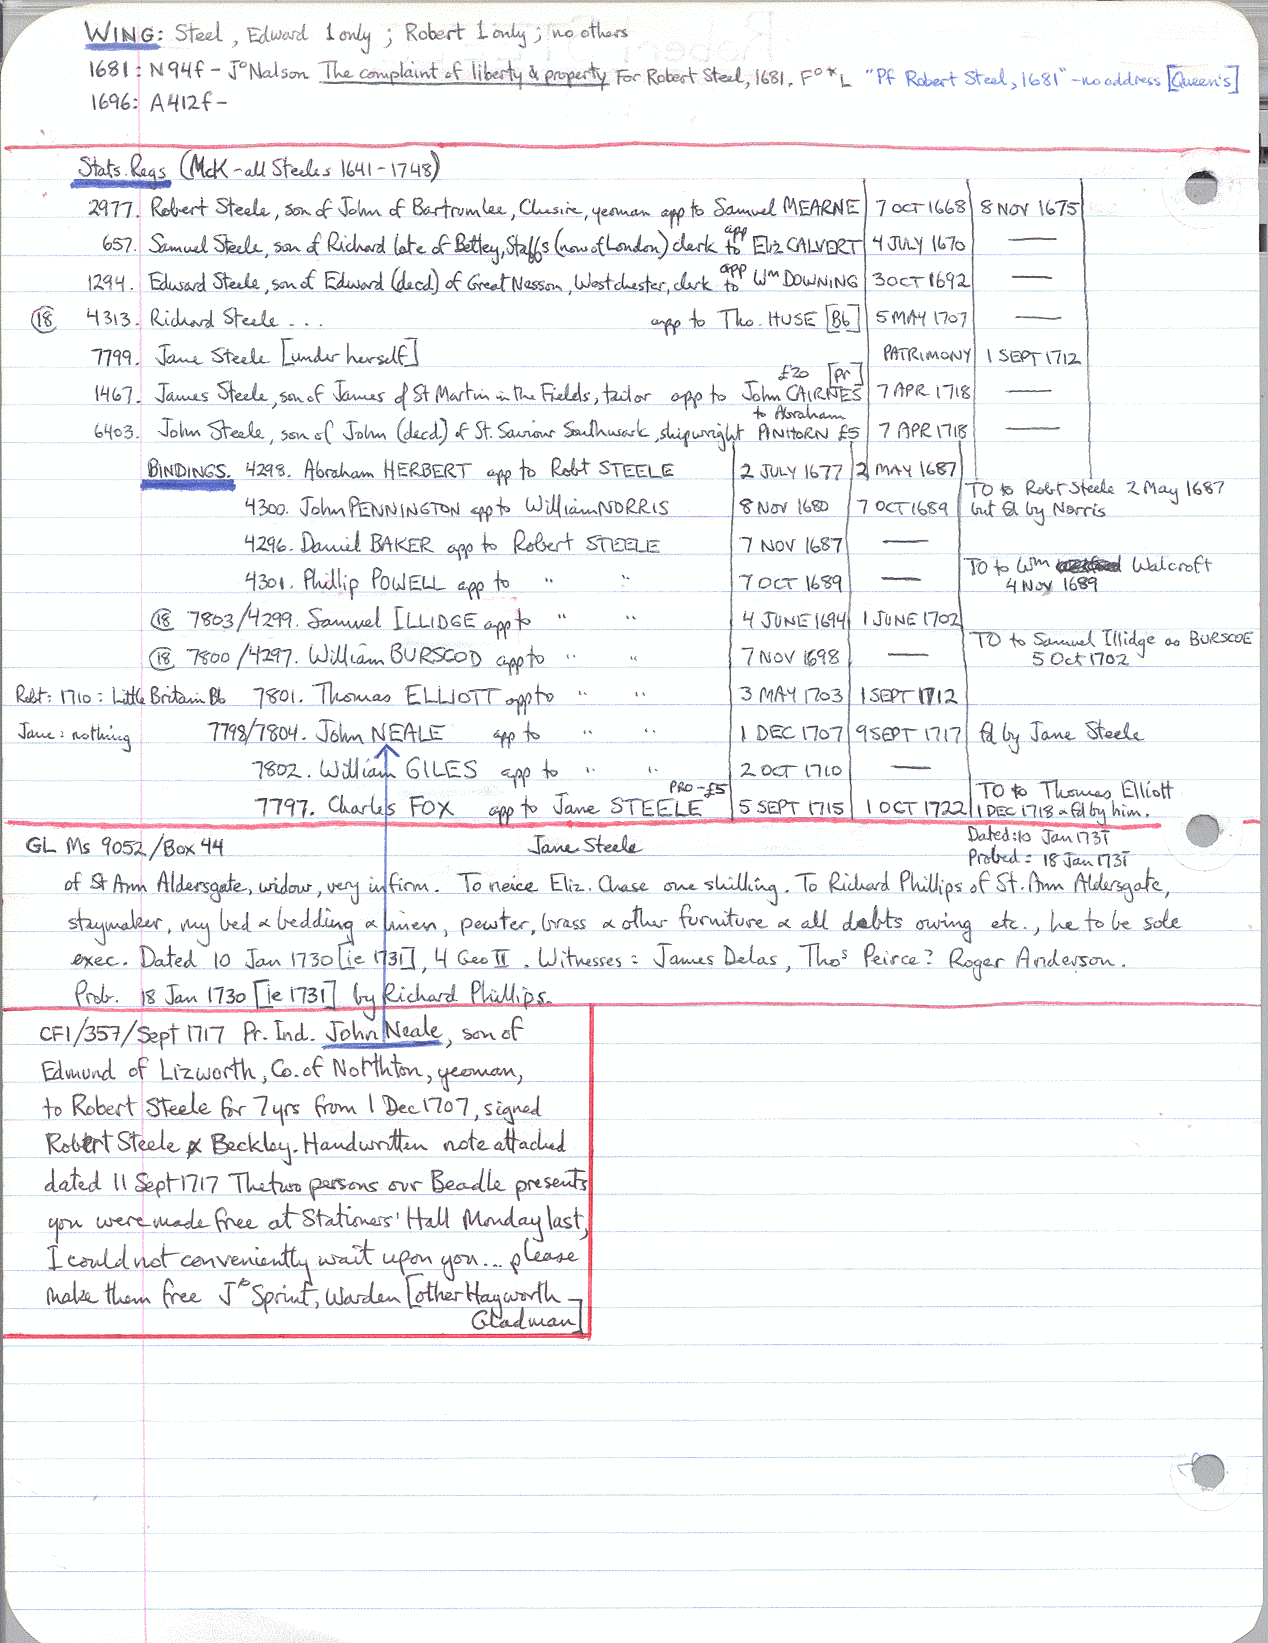 WING: Steel, Edward 1 only; Robert 1 only; no others
1681: N94f - Jº Nalson The complaint of liberty & property For Robert Steel, 1681. Fº * L "Pf Robert Steel, 1681" - no address [Queen's]
1696: A412f -
Stats. Regs (McK - all Steeles 1641-1748)
2977. Robert Steele, son of John of Bartrumlee, Chesire, yeoman app to Samuel MEARNE 7 OCT 1668 8 NOV 1675
657. Samuel Steele, son of Richard late of Betley, Staffs (now of London) clerk app to Eliz CALVERT 4 JULY 1670 —
1294. Edward Steele, son of Edward (decd) of Great Nesson, Westchester, clerk app to Wm DOWNING 3 OCT 1692 —
(18) 4313. Richard Steele ... app to Tho. HUSE [Bb] 5 MAY 1707 —
7799. Jane Steele [under herself] PATRIMONY 1 SEPT 1712
£20 [Pr]
1467. James Steele, son of James of St Martin in the Fields, tailor app to John CAIRNES 7 APR 1718 —
to Abraham
6403. John Steele, son of John (decd) of St. Saviour Southwark, shipwright PINHORN £5 7 APR 1718 —
BINDINGS. 4298. Abraham HERBERT app to Robt STEELE 2 JULY 1677 2 MAY 1687
TO to Robt Steele 2 May 1687
4300. John PENNINGTON app to William NORRIS 8 NOV 1680 7 OCT 1689 but fd by Norris
4296. Daniel BAKER app to Robert STEELE 7 NOV 1687 —
TO to Wm Walcroft
4301. Phillip POWELL app to " " 7 OCT 1689 — 4 Nov 1689
(18) 7803/4299. Samuel ILLIDGE app to " " 4 JUNE 1694 1 JUNE 1702
TO to Samuel Illidge as BURSCOE
(18) 7800/4297. William BURSCOD app to " " 7 NOV 1698 — 5 Oct 1702
Robt: 1710: Little Britain Bb 7801. Thomas ELLIOTT app to " " 3 MAY 1703 1 SEPT 1712
Jane: nothing 7798/7804. John NEALE app to " " 1 DEC 1707 9 SEPT 1717 fd by Jane Steele
7802. William GILES app to " " 2 OCT 1710 —
PRO - £5 TO to Thomas Elliott
7797. Charles FOX app to Jane STEELE 5 SEPT 1715 1 OCT 1722 1 DEC 1718 & fd by him.
GL Ms 9052/Box 44 Jane Steele Dated: 10 Jan 1731
Probed = 18 Jan 1731
of St Ann Aldersgate, widow, very infirm. To neice Eliz. Chase one shilling. To Richard Phillips of St. Ann Aldersgate,
staymaker, my bed & bedding & linen, pewter, brass & other furniture & all debts owing etc., he to be sole
exec. Dated 10 Jan 1730 [ie 1731], 4 Geo II. Witnesses: James Delas, Thos Peirce? Roger Anderson.
Prob. 18 Jan 1730 [ie 1731] by Richard Phillips.
CF1/357/Sept 1717 Pr. Ind. John Neale, son of
Edmund of Lizworth, Co. of Notthton, yeoman,
to Robert Steele for 7 yrs from 1 Dec 1707, signed
Robert Steele & Beckley. Handwritten note attached
dated 11 Sept 1717 The two persons our Beadle presents
you were made free at Stationers' Hall Monday last,
I could not conveniently wait upon you... please
make them free Jº Sprint, Warden [other Hayworth -
Gladman]